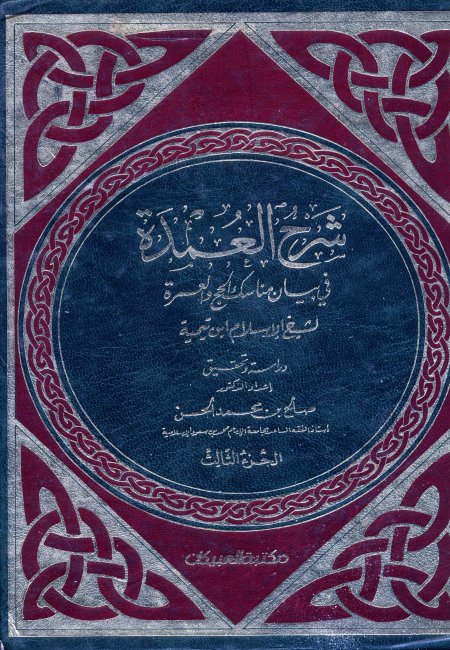 شرح العمدة
في بيان مناسك الحج والعمرة
لشيخ الإسلام ابن تيمية
دراسة وتحقيق
إعداد الدكتور
صالح بن محمد الحسن
أستاذ الفقه المساعد بجامعة الإمام محمد بن سعود الإسلامية
الجزء الثالث
مكتبة العبيكان